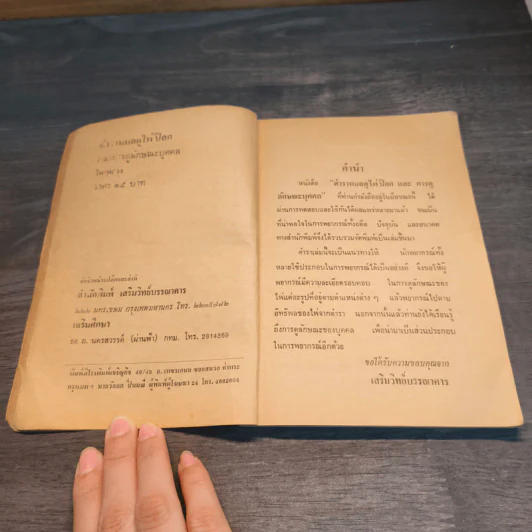 ตำราหมอดูไพ่ป๊อก
การดูลักษณะบุคคล
ราคา ๑๕ บาท
สำนักพิมพ์ เสริมวิทย์บรรณาคาร
กรุงเทพมหานคร โทร.
เสริมศึกษา
ถ. นครสวรรค์ (ผ่านฟ้า) กทม. โทร. 2814369
คำนำ
หนังสือ "ตำราหมอดูไพ่ป๊อก และ การดู
ลักษณะบุคคล" ที่ท่านกำลังถืออยู่ในมือขณะนี้ ได้
ผ่านการทดสอบและใช้กันได้ผลแพร่หลายมาแล้ว จนเป็น
ที่น่าพอใจในการพยากรณ์ทั้งอดีต ปัจจุบัน และอนาคต
ทางสำนักพิมพ์จึงได้รวบรวมจัดพิมพ์เป็นเล่มขึ้นมา
ตำราเล่มนี้จะเป็นแนวทางให้ นักพยากรณ์ทั้ง
หลายใช้ประกอบในการพยากรณ์ได้เป็นอย่างดี จึงขอให้ผู้
พยากรณ์มีความละเอียดรอบคอบ ในการดูลักษณะของ
ไพ่แต่ละรูปที่อยู่ตามตำแหน่งต่าง ๆ แล้วพยากรณ์ไปตาม
อิทธิพลของไพ่จากตำรา นอกจากนั้นแล้วท่านยังได้เรียนรู้
ถึงการดูลักษณะของบุคคล เพื่อนำมาเป็นส่วนประกอบ
ในการพยากรณ์อีกด้วย
ขอได้รับความขอบคุณจาก
เสริมวิทย์บรรณาคาร